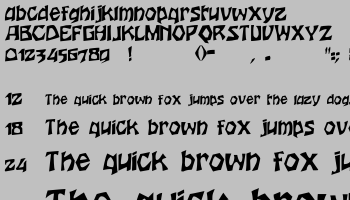 abcdefghijklmnopqrstuvwxyz
ABCDEFGHIJKLMNOPQRSTUVWXYZ
0123456780 ! ()- , . ":;
12 The quick brown fox jumps over the lazy dog.
18 The quick brown fox jumps ov
24 The quick brown fox ju
The quick brow